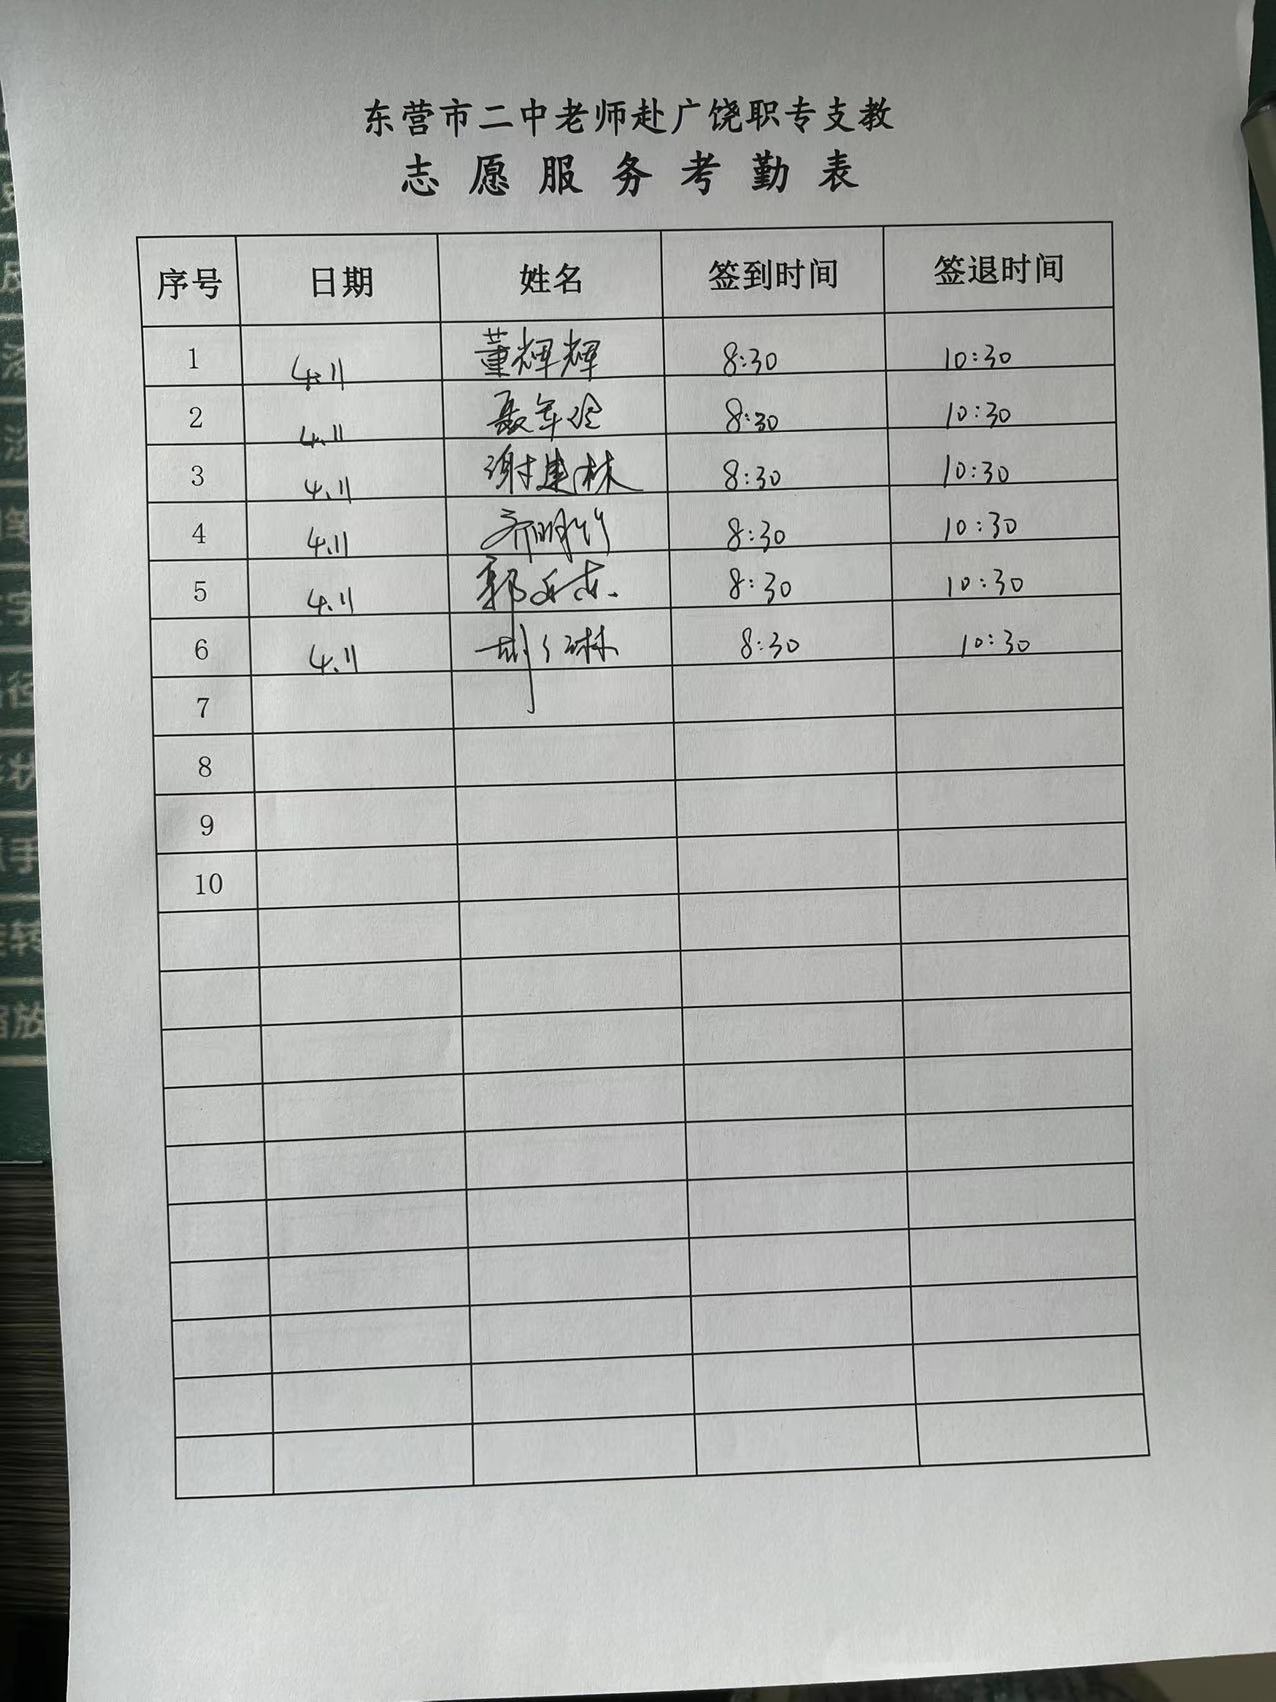 东营市二中老师赴广饶职专支教
志愿服务考勤表
序号 日期 姓名 签到时间 签退时间
1 4.11 董辉辉 8:30 10:30
2 4.11 8:30 10:30
3 4.11 谢建林 8:30 10:30
4 4.11 8:30 10:30
5 4.11 郭 8:30 10:30
6 4.11 8:30 10:30
7
8
9
10